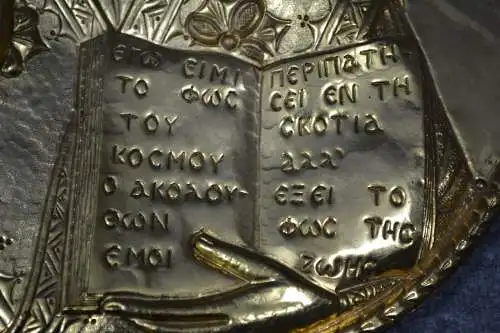 ΕΓΩ ΕΙΜΙ
ΤΟ ΦΩϹ
ΤΟΥ
ΚΟϹΜΟΥ
Ο ΑΚΟΛΟΥ-
ΘΩΝ
ΕΜΟΙ
ΠΕΡΙΠΑΤΗ
ϹΕΙ ΕΝ ΤΗ
ϹΚΟΤΙΑ
ΑΛΛ'
ΕΞΕΙ ΤΟ
ΦΩϹ ΤΗϹ
ΖΩΗϹ